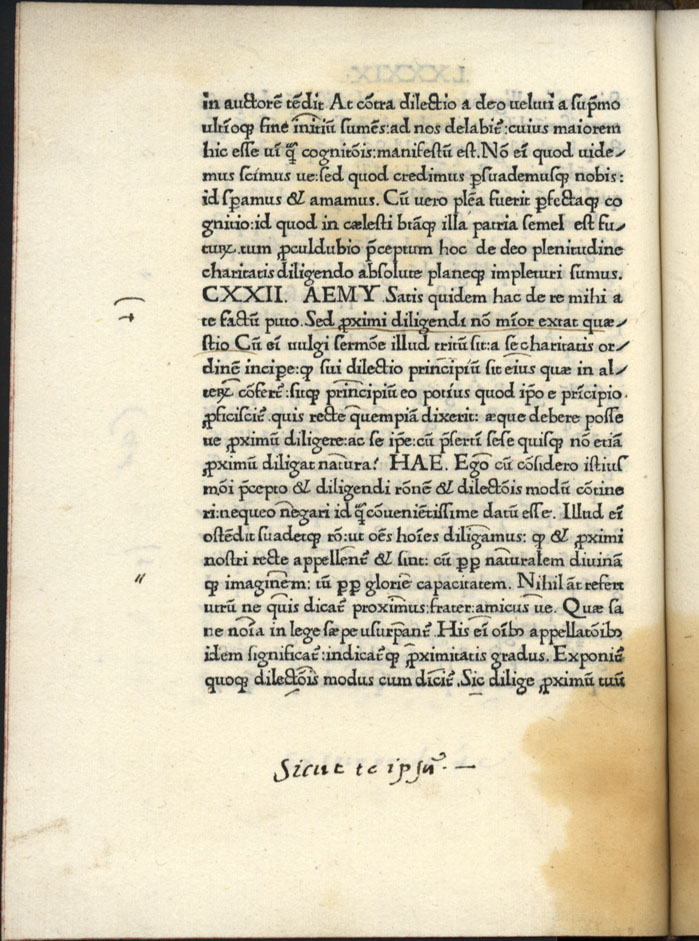 in auctorē tēdit At cōtra dilectio a deo ueluti a supmo
ultioꝗ fine initiū sumēs:ad nos delabit̄:cuius maiorem
hic esse ui ꝗ̄ cognitōis:manifestū est.Nō ei̅ quod uide⸗
mus scimus ue:sed quod credimus ꝑsuademusꝗ nobis:
id spamus & amamus. Cū uero plēa fuerit ꝑfectaꝗ co
gnitio:id quod in cælesti btāꝗ illa patria semel est fu⸗
tuꝝ.tum ꝓculdubio p̄ceptum hoc de deo plenitudine
charitatis diligendo absolute planeꝗ impleturi sumus.
CXXII. AEMY .Satis quidem hac de re mihi a
te factū puto.Sed ꝓximi diligendi nō mīor extat quæ⸗
stio Cū ei̅ uulgi sermōe illud tritū sit:a se charitatis or⸗
dinē incipe:ꝙ sui dilectio principiū sit eius quæ in al⸗
teꝝ cōfert̄:sitꝗ principiū eo potius quod ip̄o e prīcipio
ꝓficiscit̄.quis recte quempiā dixerit: æque debere posse
ue ꝓximū diligere:ac se ip̄e:cū p̄serti̅ sese quisꝗ nō etiā
ꝓximū diligat natura? HAE. Ego cū cōsidero istius
mōi p̄cepto & diligendi rōnē & dilectōis modū cōtine
ri:nequeo negari id ꝗ̄ cōueniētissime datū esse. Illud ei̅
ostēdit suadetꝗ rō:ut oēs hoīes diligamus: ꝙ & ꝓximi
nostri recte appellent̄ & sint: cū ꝓꝑ naturalem diuinā
ꝗ imaginem: tū ꝓꝑ glorię capacitatem. Nihil āt refert
utrū ne quis dicat̄ proximus:frater:amicus ue. Quæ sa
ne noīa in lege sæpe usurpant̄ .His ei̅ oībꝫ appellatōibꝫ
idem significat̄:indicat̄ꝗ ꝓximitatis gradus. Exponit̄
quoꝗ dilectōis modus cum dīcit̄ .Sic dilige ꝓximū tuū
Sicut te ipsū. —